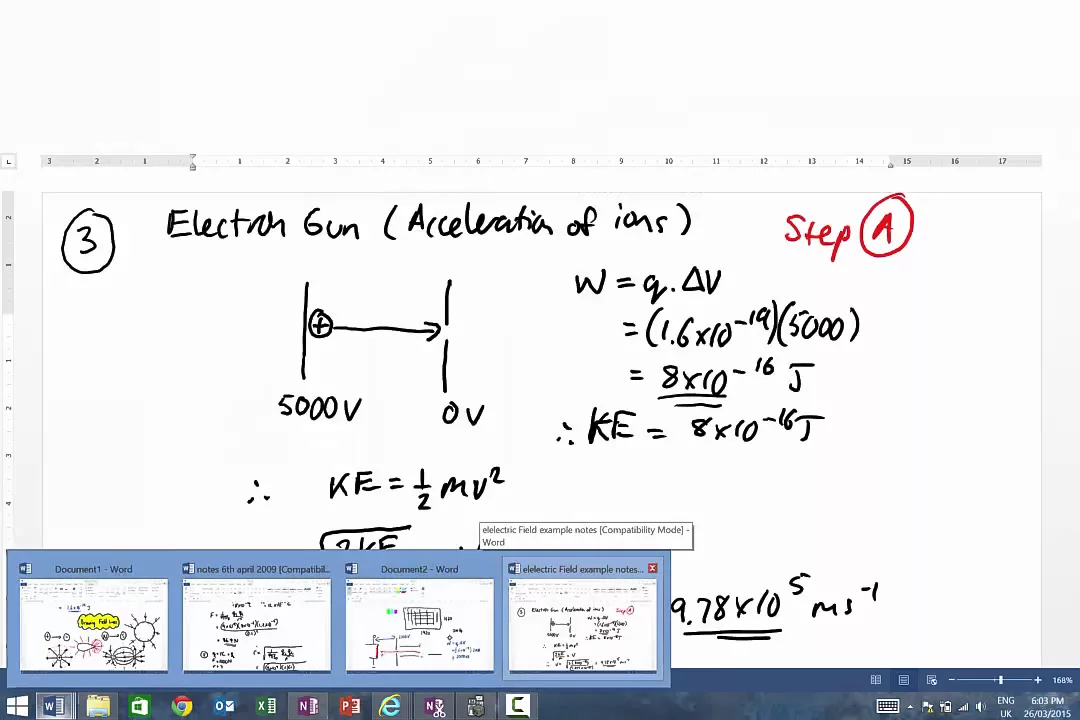 3 2 1 1 2 3 4 5 6 7 8 9 10 11 12 13 14 15 16 17
③ Electron Gun (Acceleration of ions) Step Ⓐ
W = q.ΔV
= (1.6×10⁻¹⁹)(5000)
= 8×10⁻¹⁶ J
+
5000V 0V
∴ KE = 8×10⁻¹⁶J
∴ KE = ½ mv²
2KE
elelectric Field example notes [Compatibility Mode] -
Word
Document1 - Word
notes 6th april 2009 [Compatibil...
Document2 - Word
elelectric Field example notes...
Drawing Field Lines
9.78×10⁵ ms⁻¹
168%
ENG
UK
6:03 PM
26/03/2015